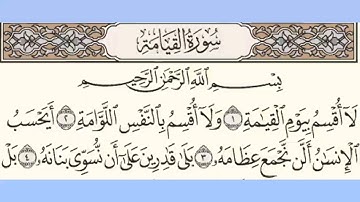 سُورَةُ ٱلْقِيَامَةِ
بِسْمِ ٱللَّهِ ٱلرَّحْمَٰنِ ٱلرَّحِيمِ
لَآ أُقْسِمُ بِيَوْمِ ٱلْقِيَٰمَةِ ١ وَلَآ أُقْسِمُ بِٱلنَّفْسِ ٱللَّوَّامَةِ ٢ أَيَحْسَبُ
ٱلْإِنسَٰنُ أَلَّن نَّجْمَعَ عِظَامَهُۥ ٣ بَلَىٰ قَٰدِرِينَ عَلَىٰٓ أَن نُّسَوِّىَ بَنَانَهُۥ ٤ بَلْ